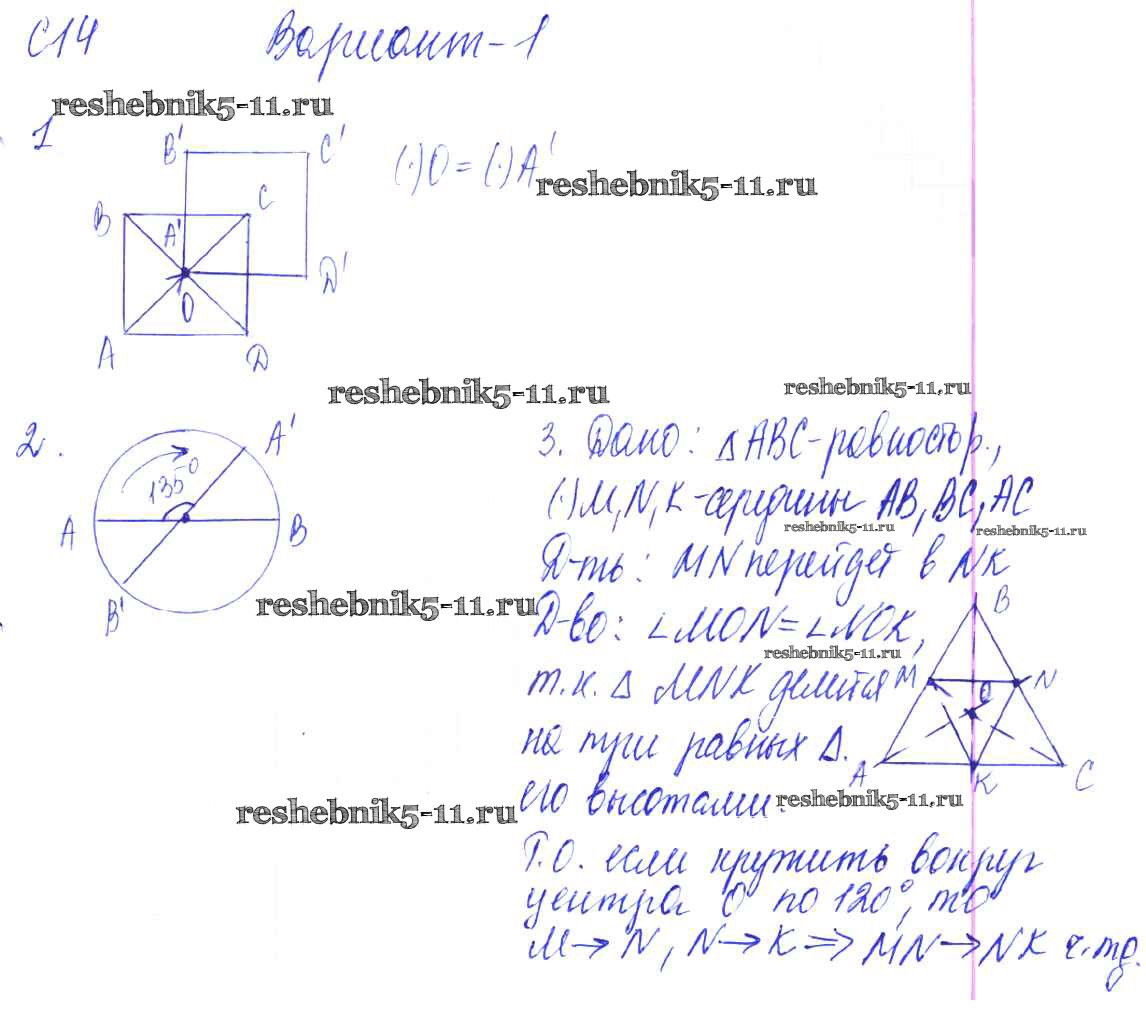 С14 Вариант-1
reshebnik5-11.ru
1
B' C' (·)O = (·)A'
reshebnik5-11.ru
B C
A'
D'
O
A D
reshebnik5-11.ru
reshebnik5-11.ru
2.
A'
135°
A B
B'
reshebnik5-11.ru
reshebnik5-11.ru
3. Дано: △ABC-равностор.,
(·)M,N,K-середины AB, BC, AC
reshebnik5-11.ru
reshebnik5-11.ru
Д-ть: MN перейдет в NK
Д-во: ∠MON=∠NOK,
reshebnik5-11.ru
т.к. △ MNK делится
на три равных △.
его высотами.
reshebnik5-11.ru
B
M N
O
A K C
Т.О. если кружить вокруг
центра O по 120°, то
M→N, N→K⇒MN→NK ч.тд.